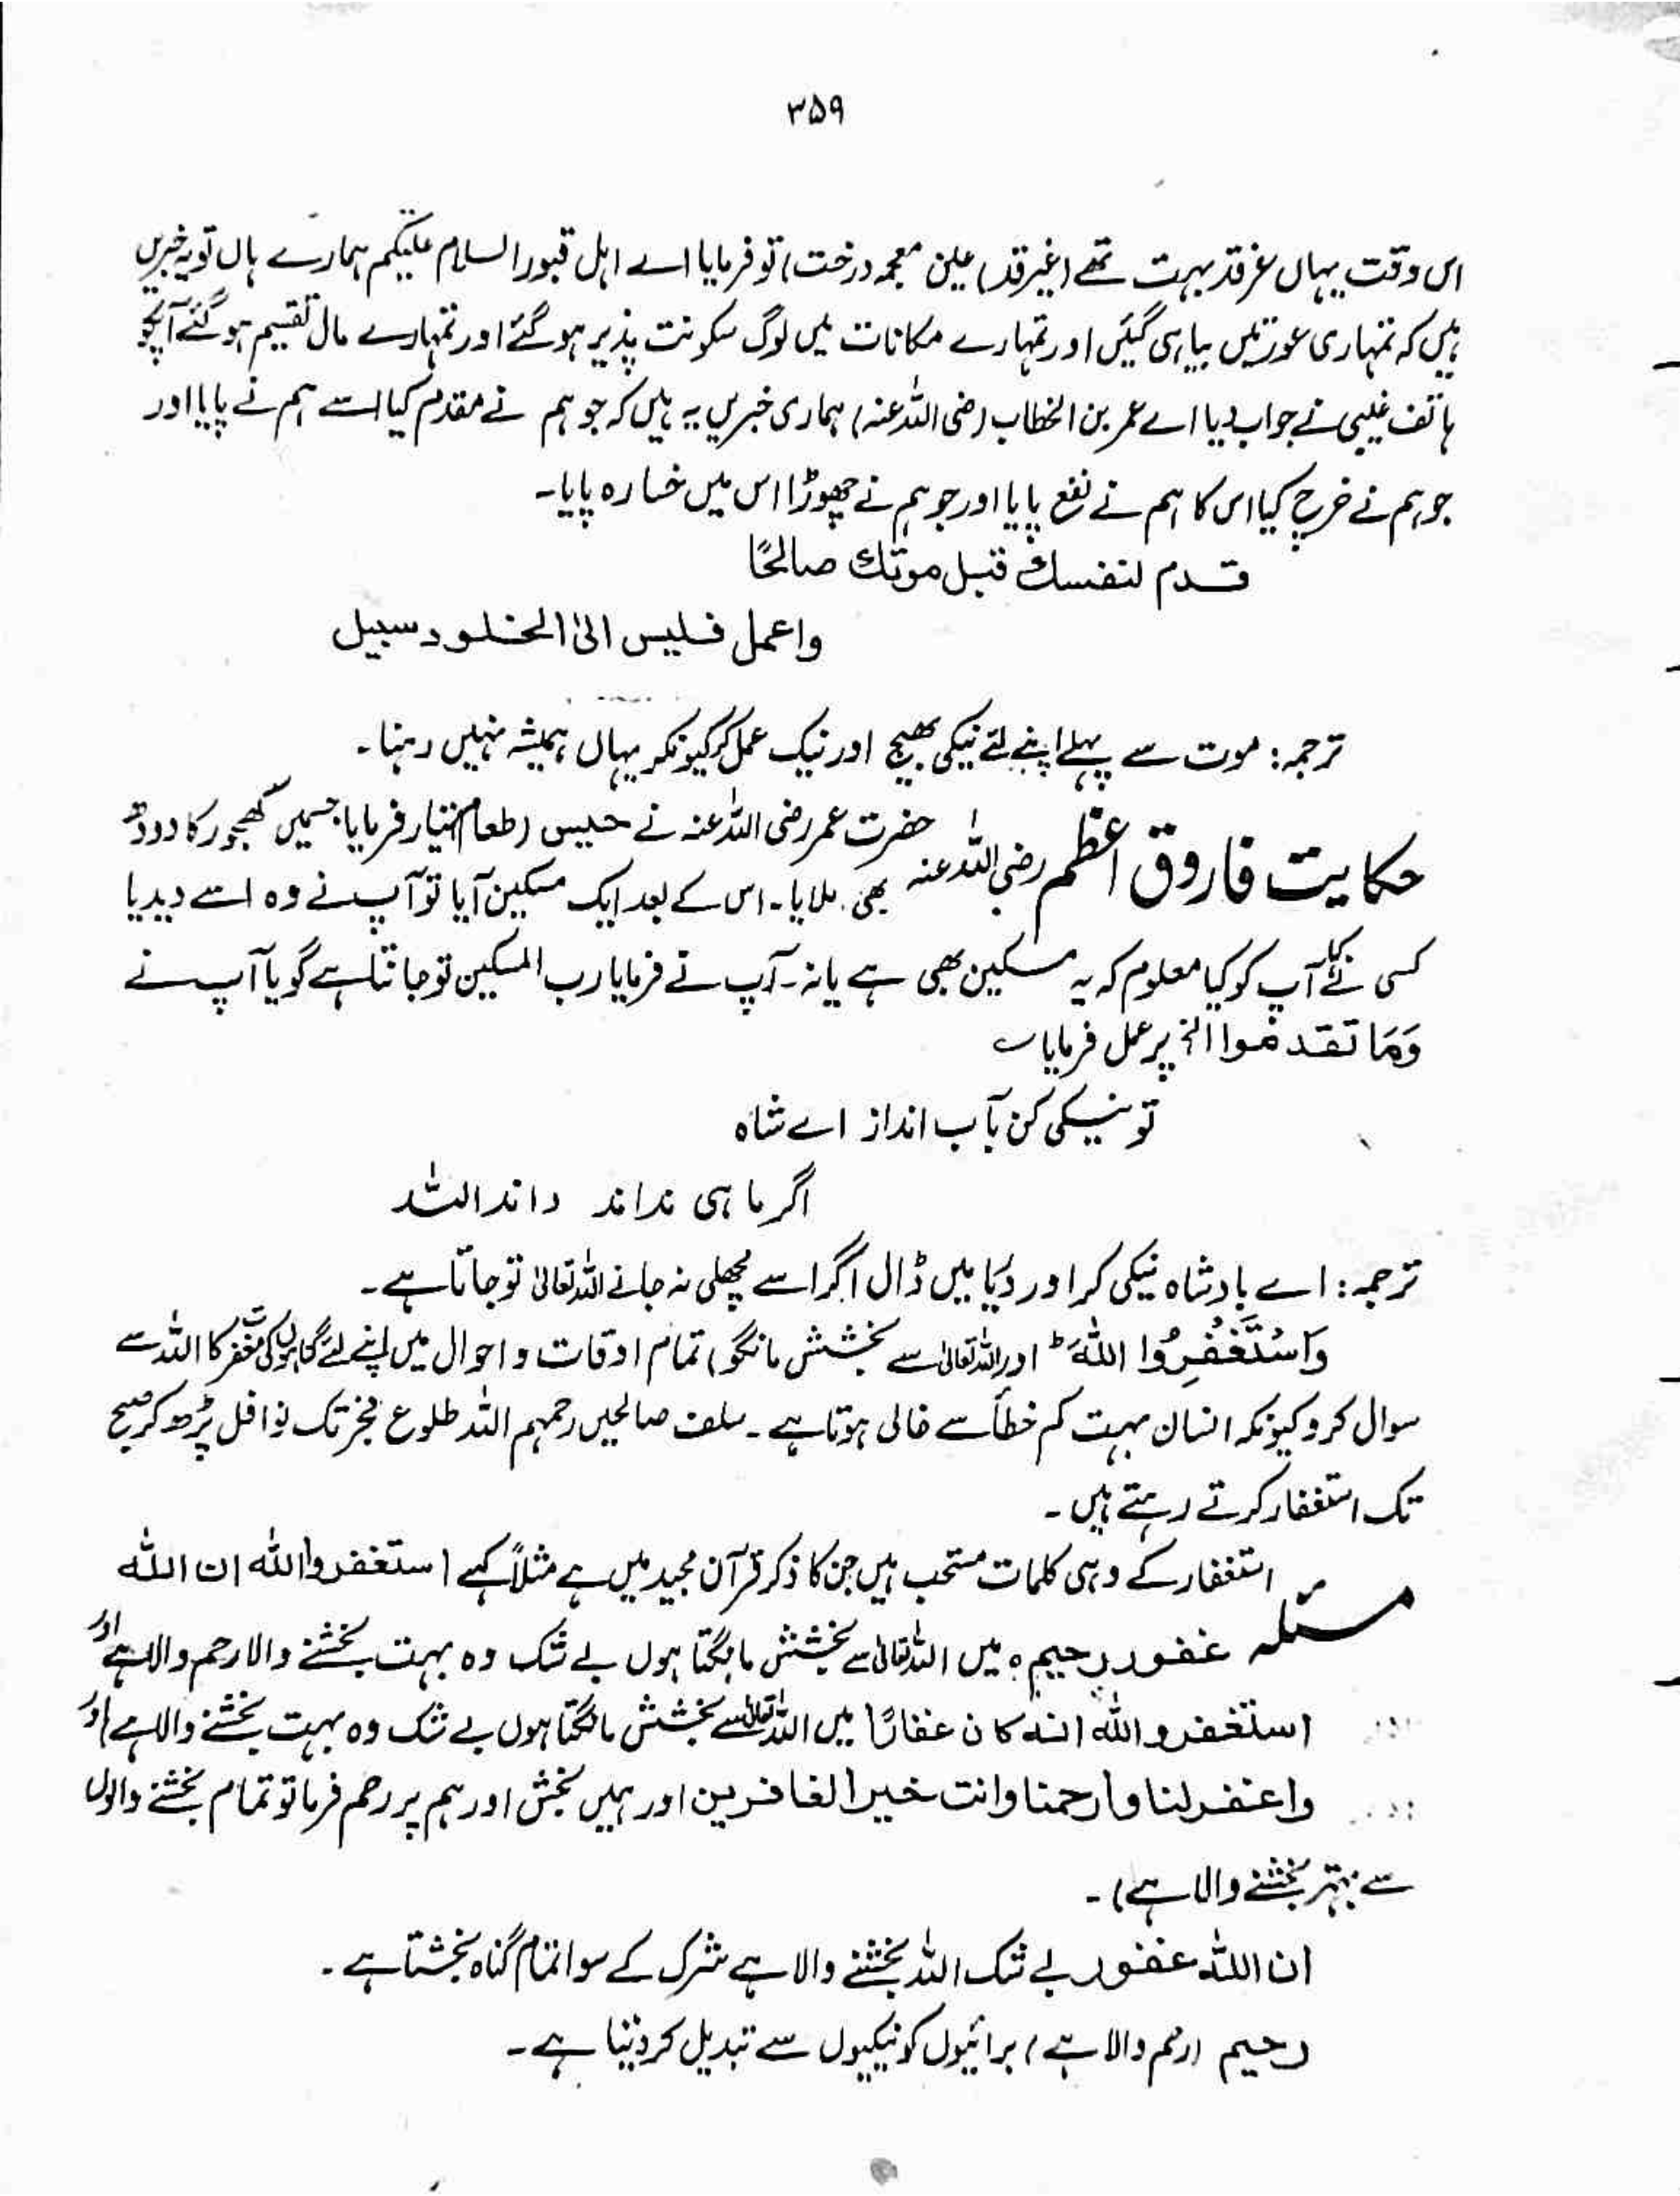 ۳۵۹
اس وقت یہاں غرقد بہت تھے (غیرقد) عین معجمہ درخت) تو فرمایا اے اہل قبور السلام علیکم ہمارے ہاں تو یہ خبریں
ہیں کہ تمہاری عورتیں بیاہی گئیں اور تمہارے مکانات میں لوگ سکونت پذیر ہو گئے اور تمہارے مال تقسیم ہو گئے آپکو
ہاتف غیبی نے جواب دیا اے عمر بن الخطاب (رضی اللہ عنہ) ہماری خبریں یہ ہیں کہ جو ہم نے مقدم کیا اسے ہم نے پایا اور
جو ہم نے خرچ کیا اس کا ہم نے نفع پایا اور جو ہم نے چھوڑا اس میں خسارہ پایا۔
قدم لنفسك قبل موتك صالحًا
واعمل فليس الىٰ الخلود سبيل
ترجمہ: موت سے پہلے اپنے لئے نیکی بھیج اور نیک عمل کر کیونکہ یہاں ہمیشہ نہیں رہنا۔
حکایت فاروق اعظم رضی اللہ عنہ حضرت عمر رضی اللہ عنہ نے حیس (طعام) تیار فرمایا جسمیں کھجور کا دودھ
بھی ملایا۔ اس کے بعد ایک مسکین آیا تو آپ نے وہ اسے دیدیا
کسی نے کہا آپ کو کیا معلوم کہ یہ مسکین بھی ہے یا نہ۔ آپ نے فرمایا رب المسکین تو جانتا ہے گویا آپ نے
وَمَا تقدموا الخ پر عمل فرمایا ؎
تو نیکی کن بآب انداز اے شاہ
اگر ماہی نداند داند اللہ
ترجمہ: اے بادشاہ نیکی کر اور دریا میں ڈال اگر اسے مچھلی نہ جانے اللہ تعالیٰ تو جانتا ہے۔
وَاسْتَغْفِرُوا اللّٰهَ ط اور اللہ تعالیٰ سے بخشش مانگو) تمام اوقات و احوال میں اپنے لئے گناہوں کی مغفرت کا اللہ سے
سوال کرو کیونکہ انسان بہت کم خطأ سے خالی ہوتا ہے۔ سلف صالحین رحمہم اللہ طلوع فجر تک نوافل پڑھ کر صبح
تک استغفار کرتے رہتے ہیں۔
مسئلہ استغفار کے وہی کلمات مستحب ہیں جن کا ذکر قرآن مجید میں ہے مثلاً کہے (ستغفروا الله ان الله
غفور رحيم ہ میں اللہ تعالیٰ سے بخشش مانگتا ہوں بے شک وہ بہت بخشنے والا رحم والا ہے اور
استغفروا الله انه كان غفارًا میں اللہ تعالیٰ سے بخشش مانگتا ہوں بے شک وہ بہت بخشنے والا ہے) اور
واغفرلنا وارحمنا وانت خير الغافرين اور ہمیں بخش اور ہم پر رحم فرما تو تمام بخشنے والوں
سے بہتر بخشنے والا ہے)۔
ان اللہ غفور بے شک اللہ بخشنے والا ہے شرک کے سوا تمام گناہ بخشتا ہے۔
رحیم (رحم والا ہے) برائیوں کو نیکیوں سے تبدیل کر دیتا ہے۔